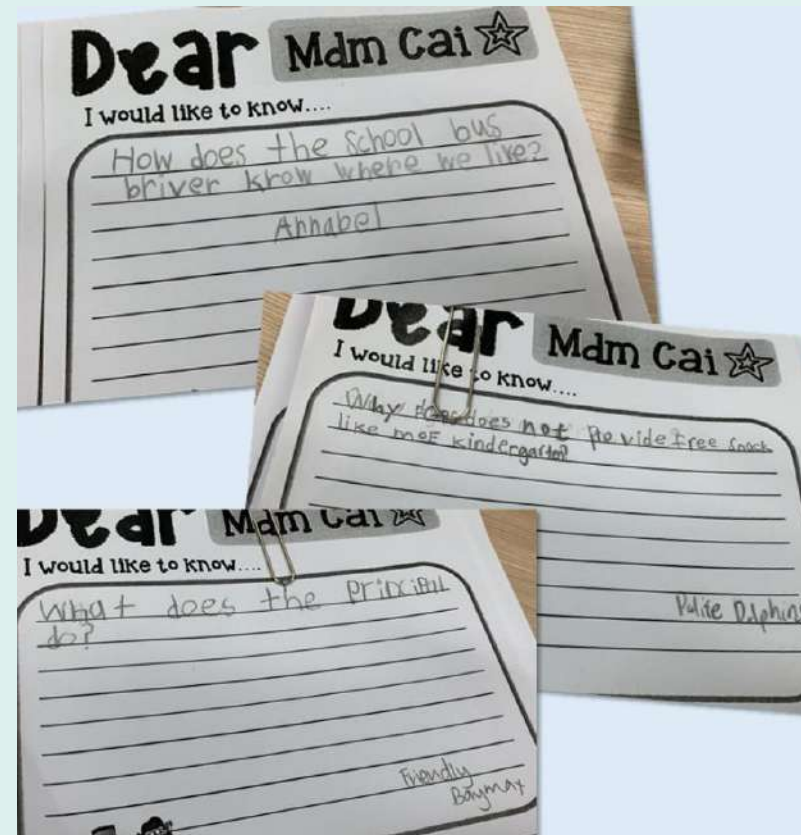 Dear Mdm Cai
I would like to know....
How does the school bus
briver krow where we live?
Annabel
Dear Mdm Cai
I would like to know....
Why does does not provide free snack
like MOE kindergarten?
Polite Dolphins
Dear Mdm Cai
I would like to know....
What does the principal
do?
Friendly
Baymax